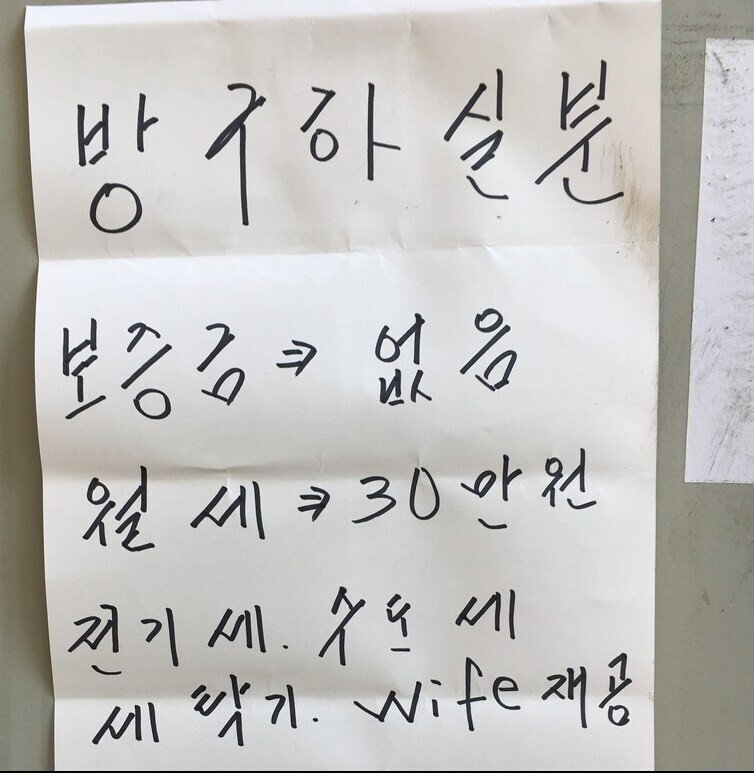 방 구 하 실 분
보증금 ⇒ 없음
월 세 ⇒ 30 만 원
전기 세. 수도 세
세 탁 기. wife 재공